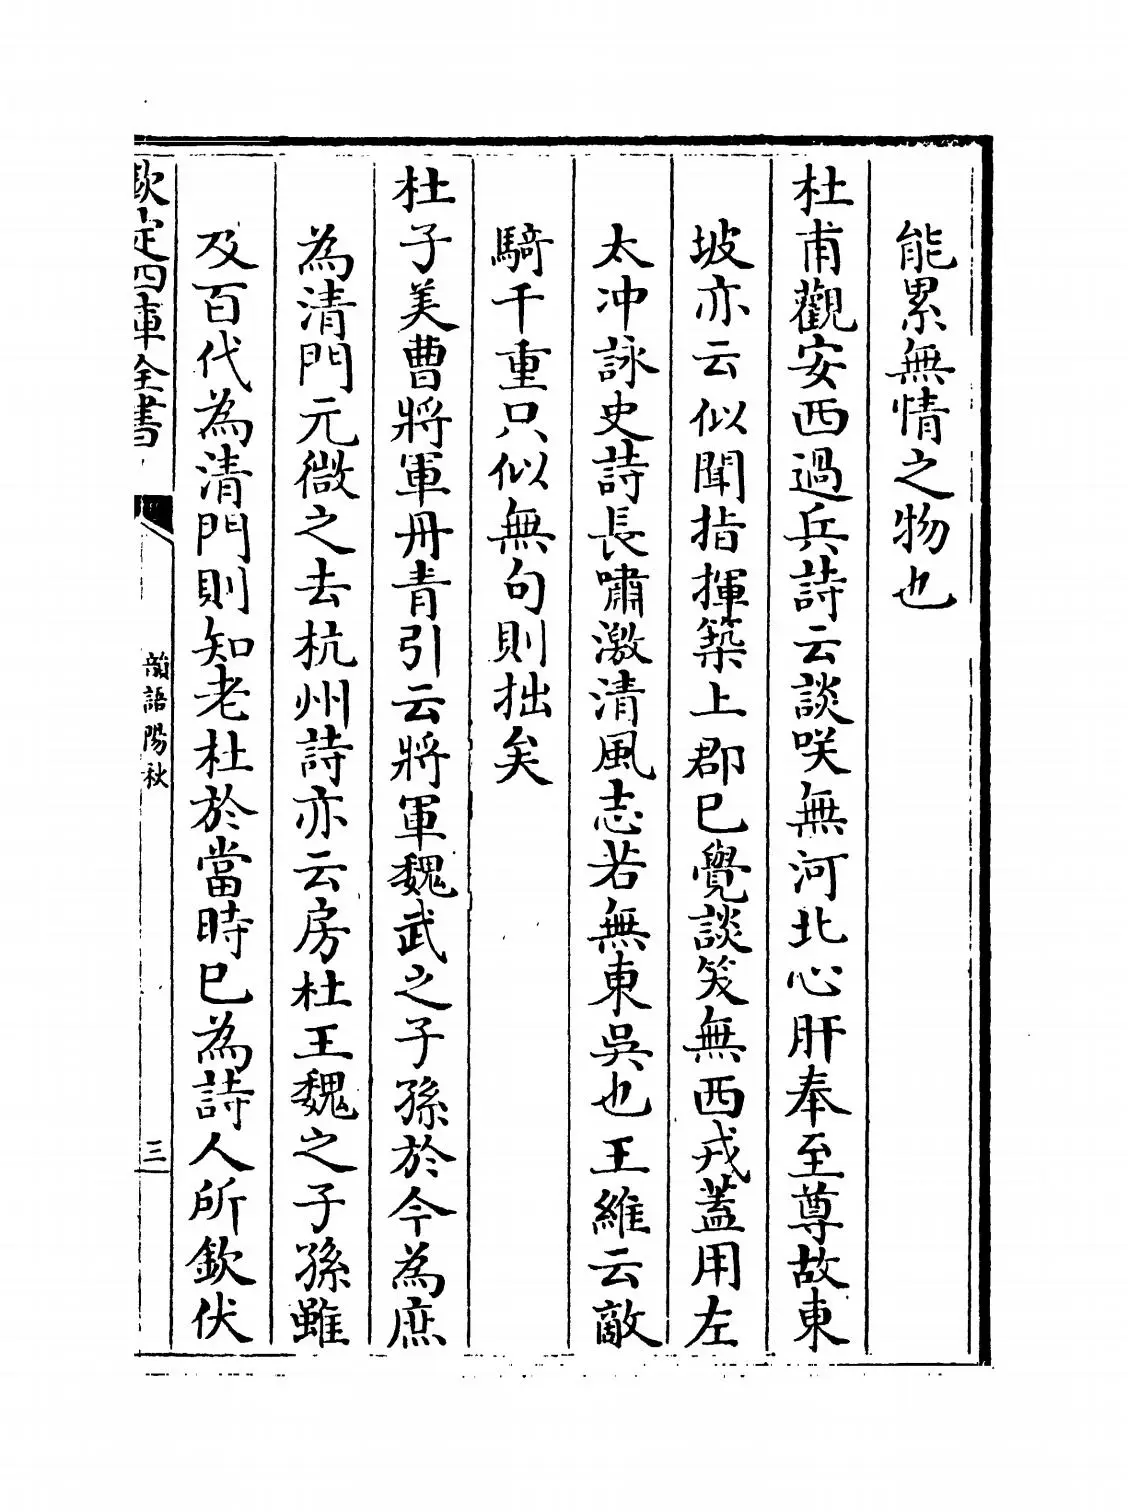 能累無情之物也
杜甫觀安西過兵詩云談咲無河北心肝奉至尊故東
坡亦云似聞指揮築上郡已覺談笑無西戎蓋用左
太冲詠史詩長嘯激清風志若無東吳也王維云敵
騎千重只似無句則拙矣
杜子美曹將軍丹青引云將軍魏武之子孫於今為庶
為清門元微之去杭州詩亦云房杜王魏之子孫雖
及百代為清門則知老杜於當時已為詩人所欽伏
欽定四庫全書
韻語陽秋
三